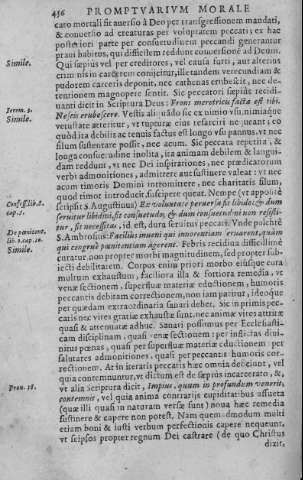 436 PROMPTVARIVM MORALE
cato mortali sit auersio à Deo per transgressionem mandati,
& conuersio ad creaturas per voluptatem peccati ex hac
posteriori parte per consuetudinem peccandi generantur
praui habitus, qui difficilem reddunt conuersionē ad Deum.
Simile.
Qui sæpius vel per creditores, vel causa furti, aut alterius
criminis in carcerem conijcitur, ille tandem verecundiam &
pudorem carceris deponit, nec cathenas erubescit, nec de-
tentionem magnopere sentit. Sic peccatori sæpiùs recidi-
Ierem. 3.
uanti dicit in Scriptura Deus: Frons meretricis facta est tibi.
Simile.
Nescis erubescere. Vestis aliquādo sic ex nimio vsu nimiaque
vetustate atteritur, vt rupturæ eius resarciri ne queant; eo
quòd ita debilis ac tenuis factus est longo vsu pannus, vt nec
filum sustentare possit, nec acum. Sic peccata repetita, &
longa consuetudine inolita, ita animam debilem & langui-
dam reddunt, vt nec Dei inspirationes, nec prædicatorum
verbi admonitiones, admittere aut sustinere valeat: vt nec
acum timoris Domini intromittere, nec charitatis filum,
quod timor introducit, suscipere queat. Nempe (vt apposite
Confess. lib. 8.
scripsit S. Augustinus) Ex voluntate peruersa fit libido: & dum
cap. 5.
seruitur libidini, fit consuetudo, & dum consuetudini non resisti-
tur, fit necessitas, id est, dura seruitus peccati. Vnde pulchrè
De pœnitent.
S. Ambrosius: Facilius inueni qui innocentiam seruarent, quàm
lib. 2. cap. 10.
qui congruè pœnitentiam agerent. Febris recidiua difficillimè
Simile.
curatur, non propter morbi magnitudinem, sed propter sub-
iecti debilitatem. Corpus enim priori morbo eiusque cura
multum exhaustum, faciliora illa & fortiora remedia, vt
venæ sectionem, superfluæ materiæ eductionem, humoris
peccantis debitam correctionem, non iam patitur, ideoque
per quædam extraordinaria sanari debet. Sic in primis pec-
catis nec vires gratiæ exhaustæ sunt, nec animæ vires attritæ
quasi & attenuatæ adhuc. Sanari possumus per Ecclesiasti-
cam disciplinam, quasi venæ sectionem: per inflictas diui-
nitus pœnas, quasi per superfluæ materiæ eductionem: per
salutares admonitiones, quasi per peccantis humoris cor-
rectionem. At in iteratis peccatis hæc omnia deficiunt, vel
quia contemnuntur, vt dictum est de sæpius incarcerato, &,
Prou. 18.
vt alia Scriptura dicit, Impius, quum in profundum venerit,
contemnit, vel quia anima contrarijs cupiditatibus assueta
(quæ illi quasi in naturam versæ sunt) noua hæc remedia
sustinere & capere non potest. Nam quemadmodum multi
etiam boni & iusti verbum perfectionis capere nequeunt,
vt seipsos propter regnum Dei castrare (de quo Christus
dixit,